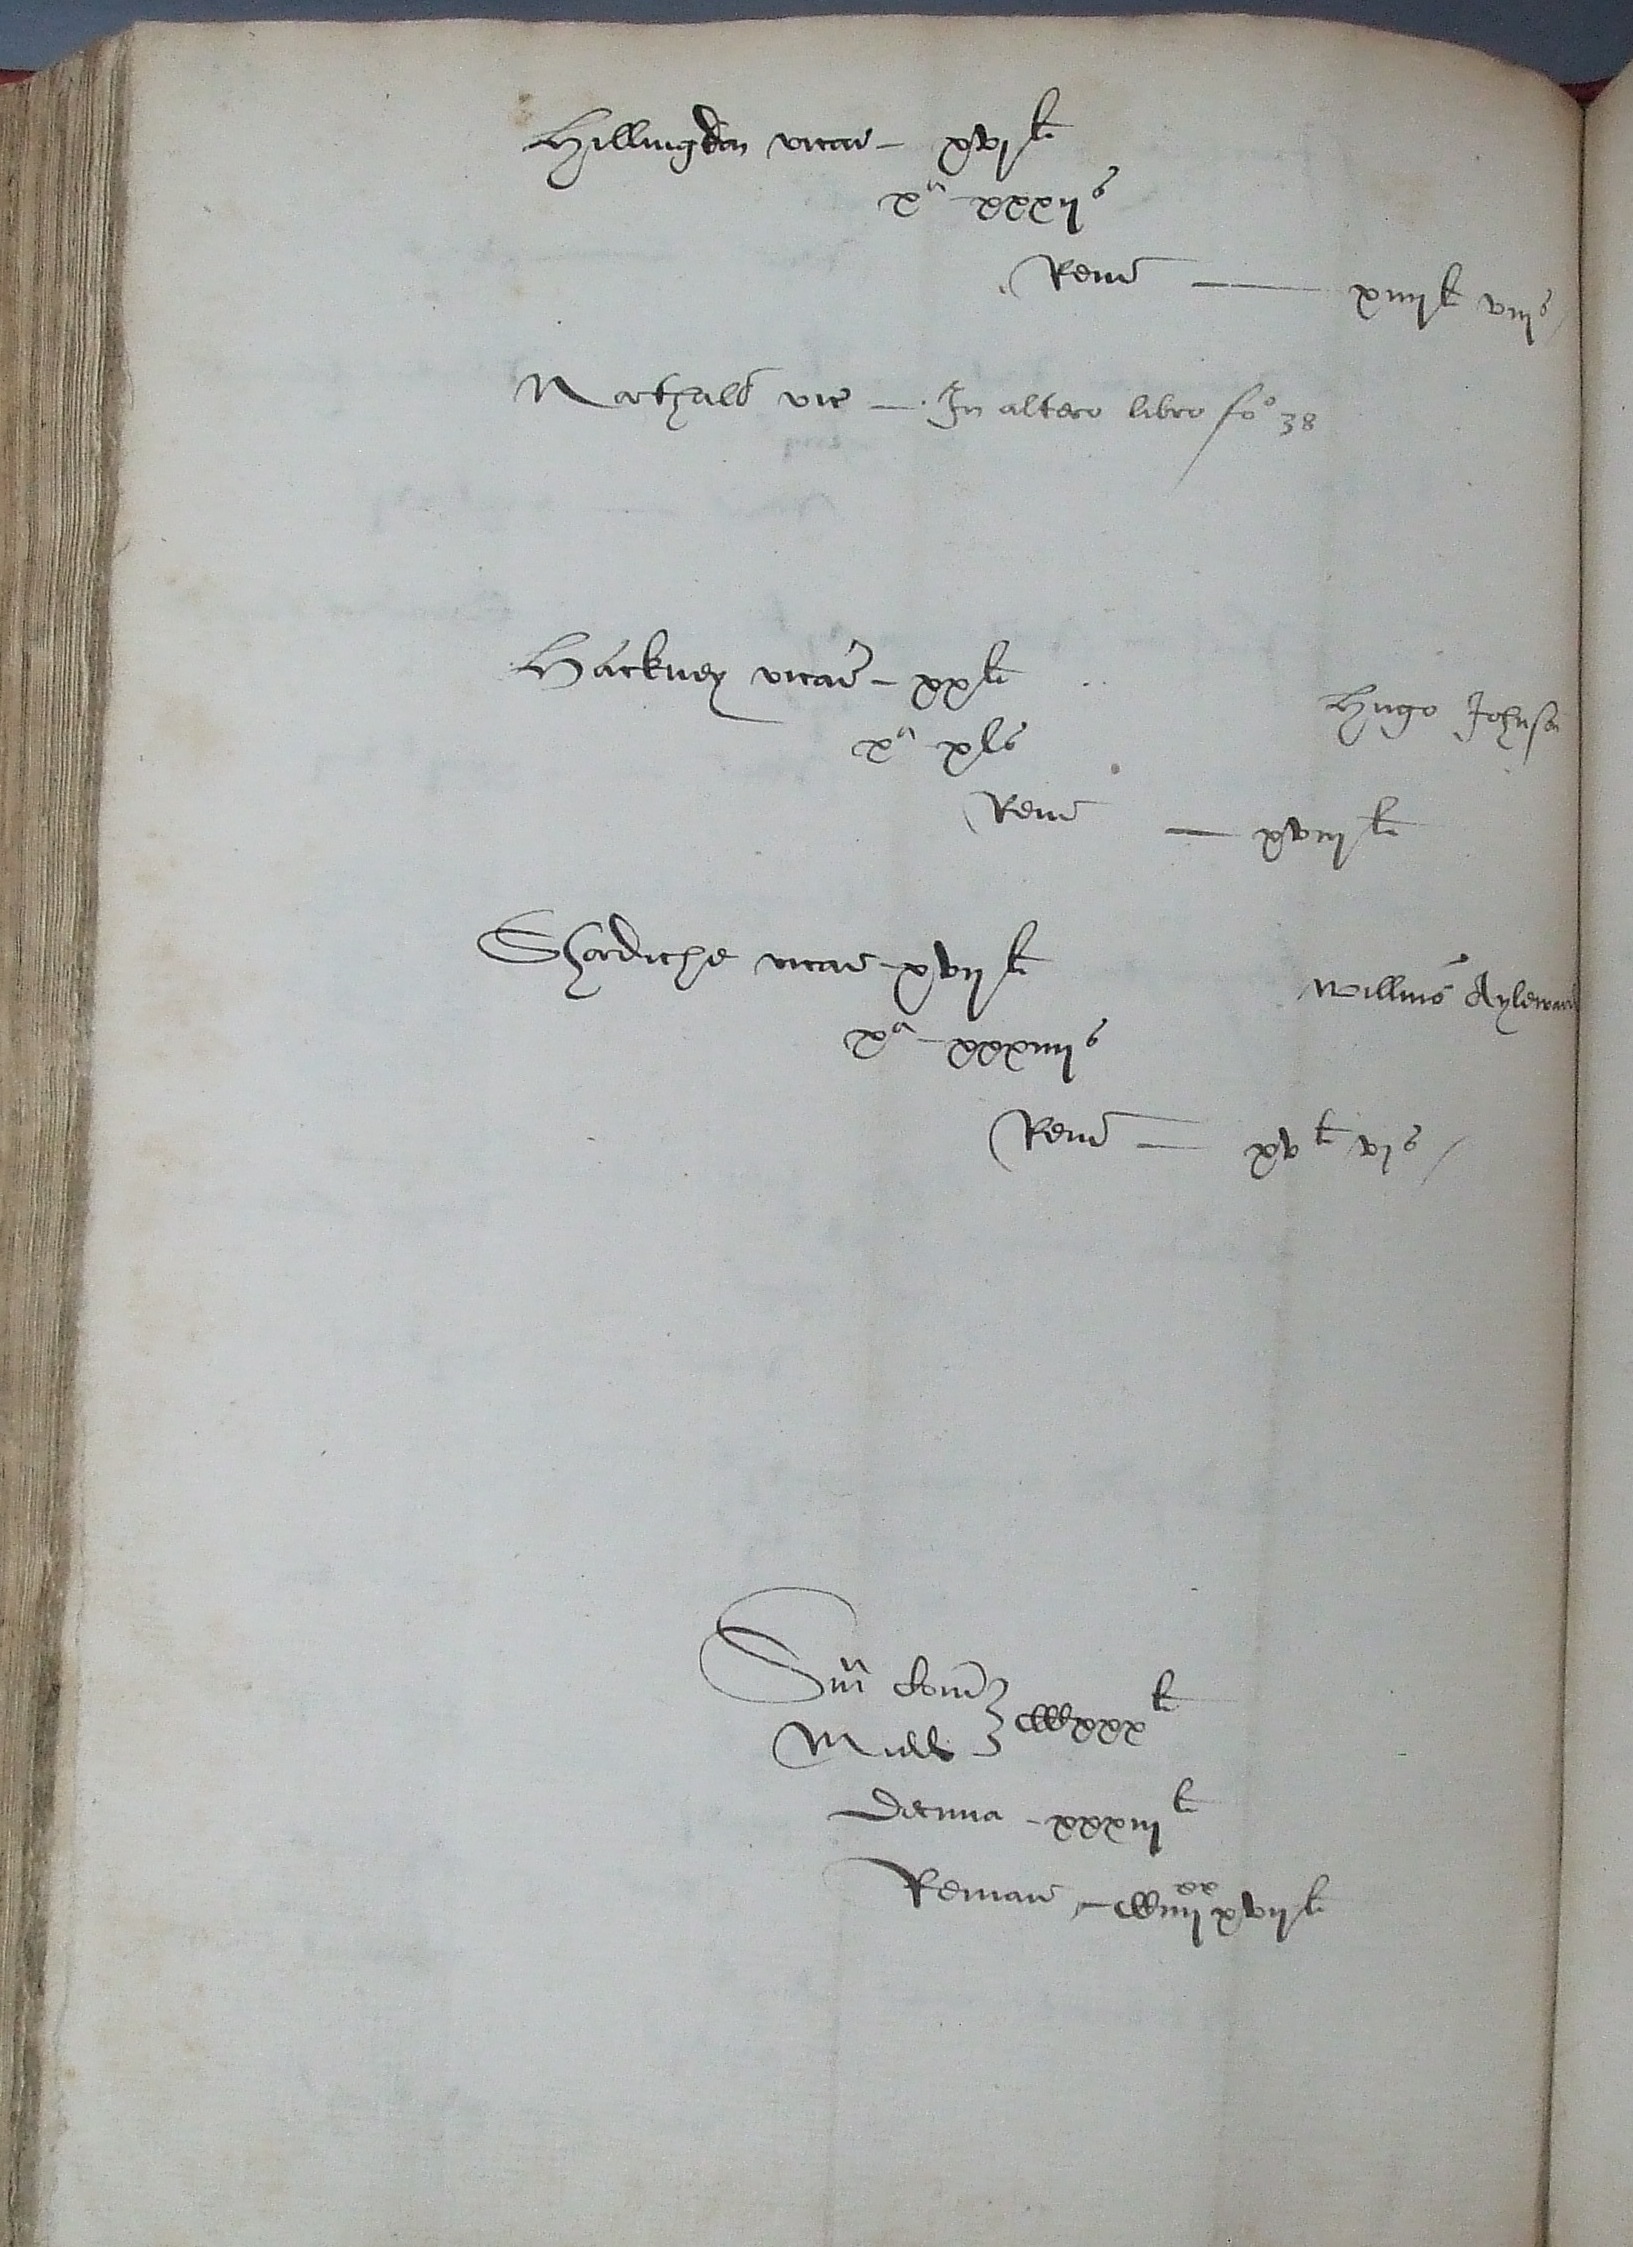 Hillingdon vicar – xvj li
xa – xxxij s
Rem – xiiij li viij s
Northall vic – In altero libro fo 38
Hackney vicar – xx li
Hugo Johnson
xa xl s
Rem – xviij li
Shordiche vicar – xvij li
Willms Ayleward
xa – xxxiiij s
Rem – xv li vj s
Sm com
Midds } cccxxx li
Decima – xxxiij li
Reman – cciiij xx xvij li